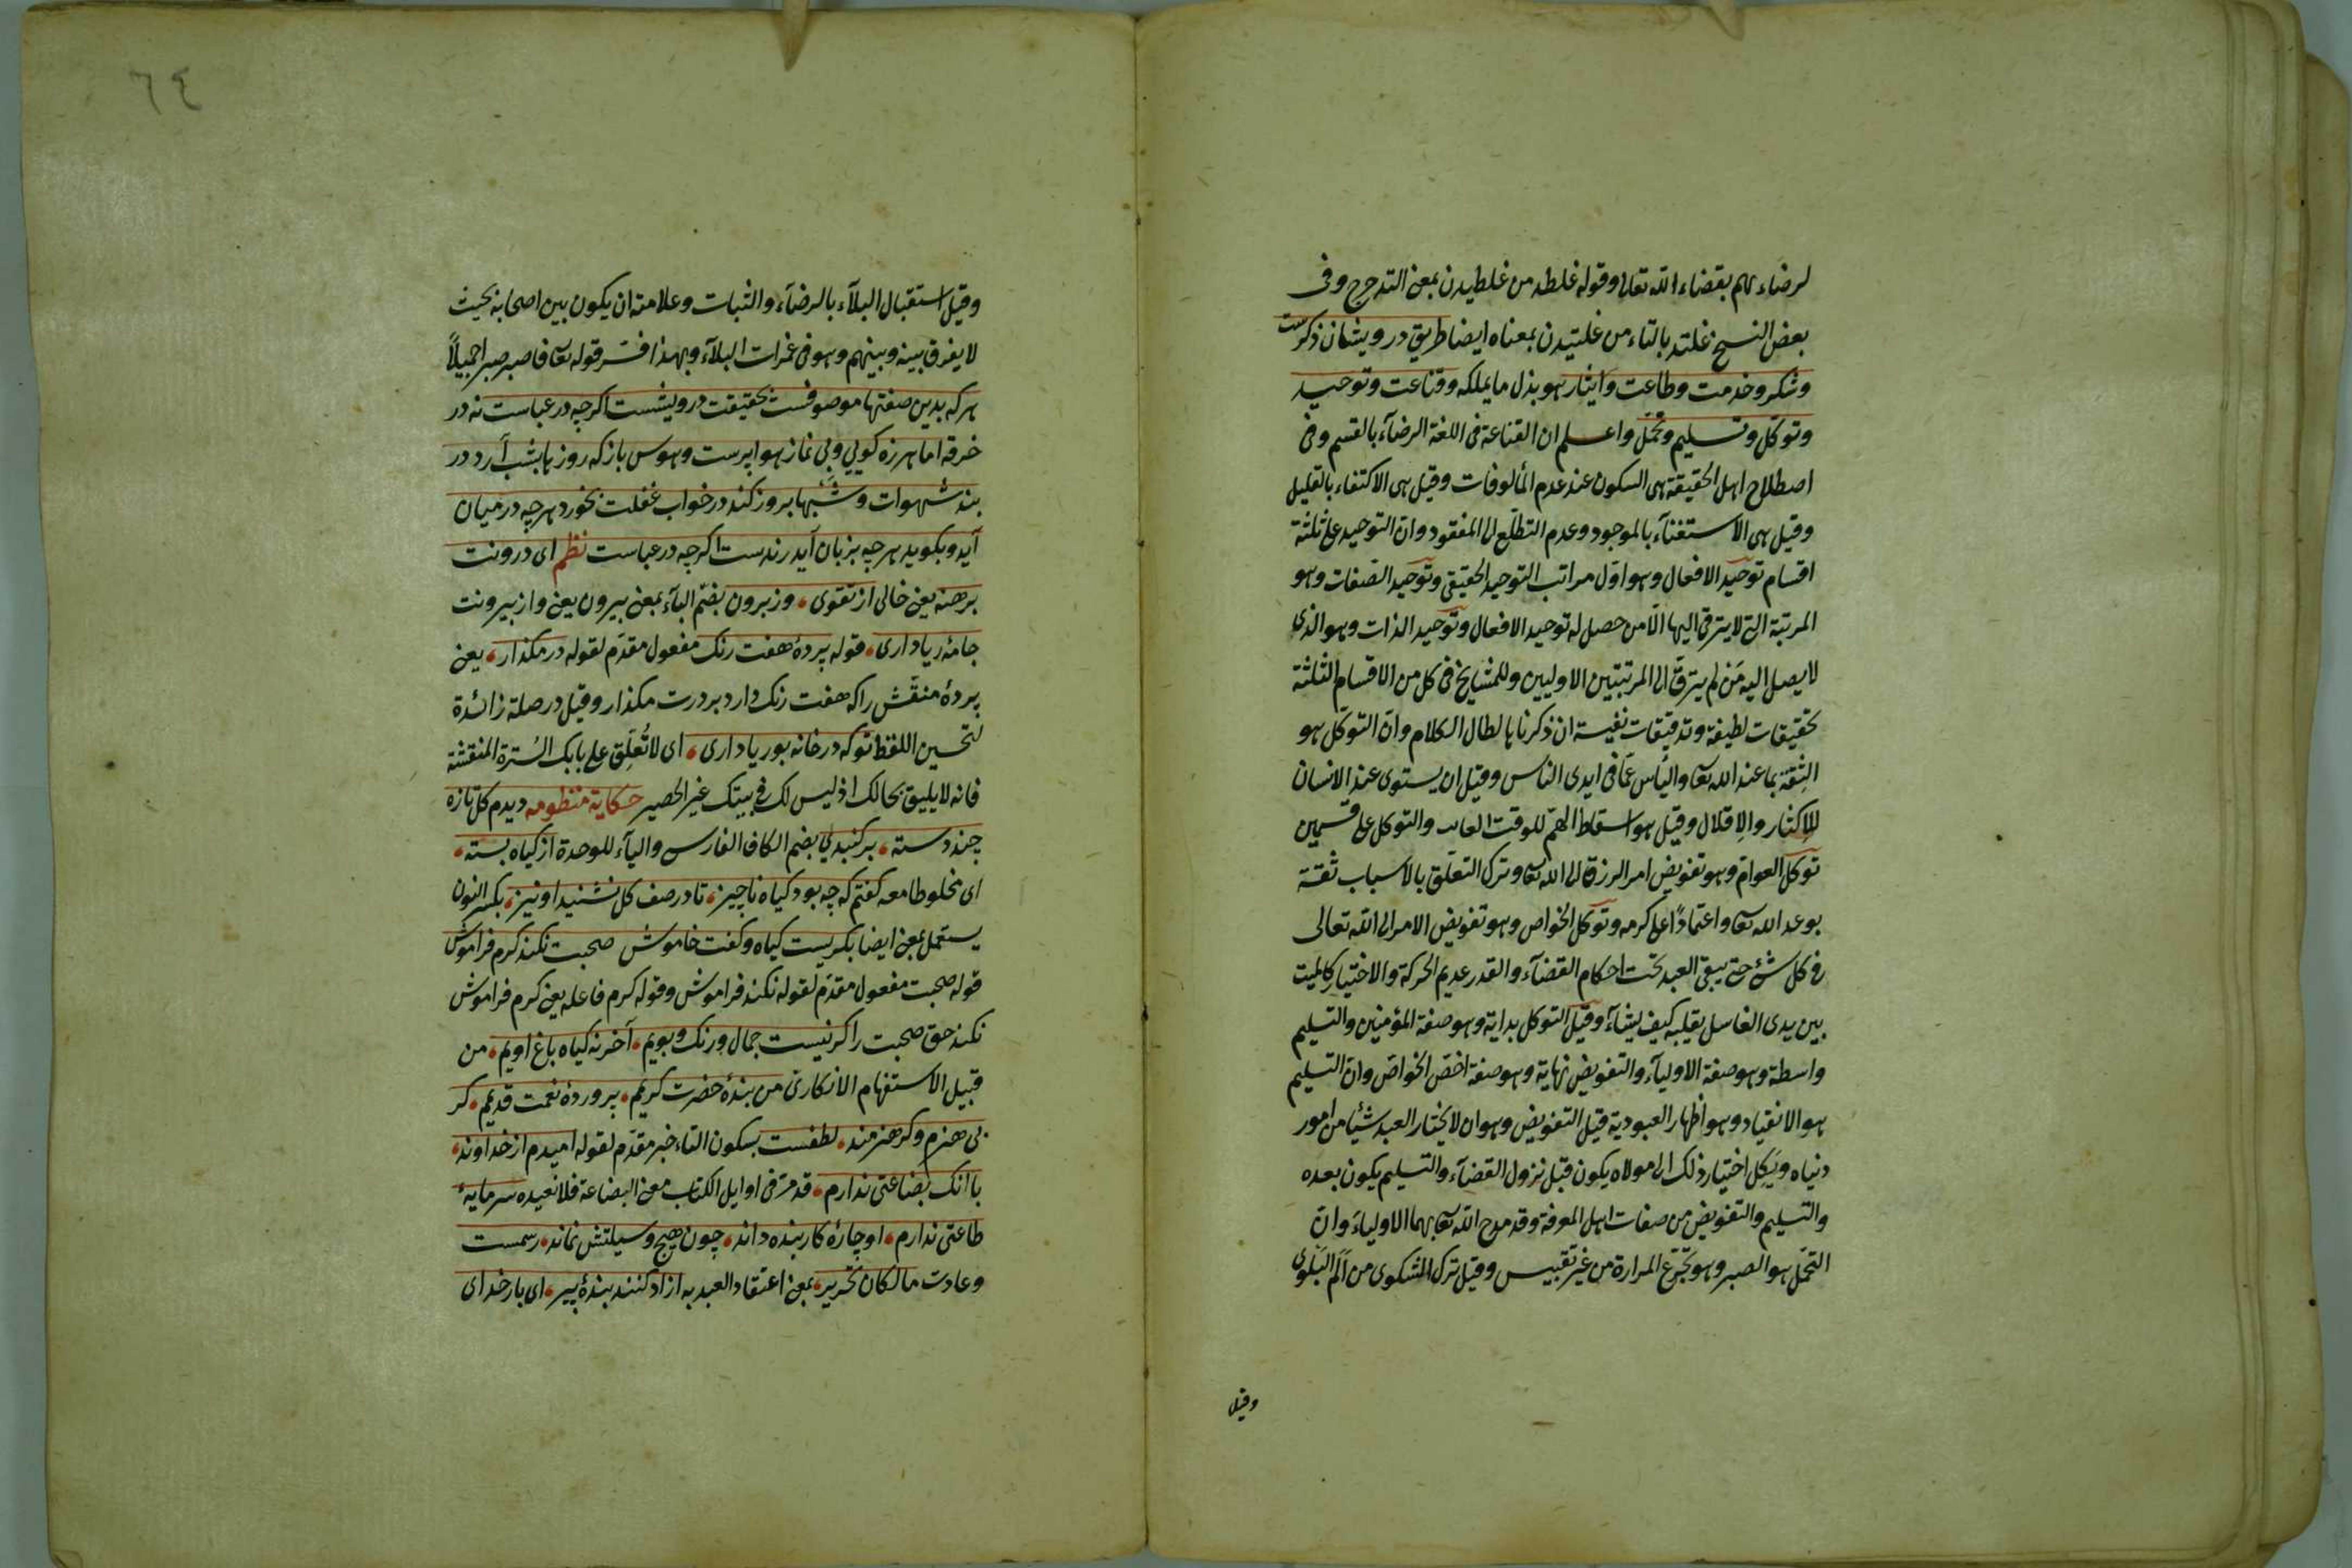 لرضاء بهم بقضاء الله تعالى وقوله غلطد من غلطيدن بمعنى التدحرج وفى
بعض النسخ غلتد بالتاء من غلتيدن بمعناه ايضا طريق درويشان ذكرست
وشكر وخدمت وطاعت وايثار هو بذل ما يملكه وقناعت وتوحيد
وتوكل وتسليم وتحمّل واعلم ان القناعة فى اللغة الرضآء بالقسم وفى
اصطلاح اهل الحقيقة هى السكون عند عدم المألوفات وقيل هى الاكتفاء بالقليل
وقيل هى الاستغنآء بالموجود وعدم التطلّع الى المفقود وان التوحيد على ثلثة
اقسام توحيد الافعال وهو اوّل مراتب التوحيد الحقيقى وتوحيد الصّفات وهو
المرتبة التى لا يترقى اليها الّا من حصل له توحيد الافعال وتوحيد الذات وهو الذى
لا يصل اليه مَن لم يترقّ الى المرتبتين الاوليين وللمشايخ فى كل من الاقسام الثلثة
تحقيقات لطيفة وتدقيقات نفيسة ان ذكرناها لطال الكلام وانّ التوكّل هو
الثِقَة بما عند الله تعا واليأس عمّا فى ايدى الناس وقيل ان يستوى عند الانسان
الاِكثار والاِقلال وقيل هو اسقاط الهمّ للوقت والتوكل على قسمين
توكل العوامّ وهو تفويض امر الرزق الى الله تعا وترك التعلّق بالاسباب ثقة
بوعد الله تعا واعتماداً على كرمه وتوكل الخواص وهو تفويض الامر الى الله تعالى
فى كل شئ حتى يبقى العبد تحت احكام القضآء والقدر عديم الحركة والاختيار كالميت
بين يدى الغاسل يقلبه كيف يشآء وقيل التوكل بداية وهو صفة المؤمنين والتسليم
واسطة وهو صفة الاوليآء والتفويض نهاية وهو صفة اخصّ الخواصّ وانّ التسليم
هو الانقياد وهو اظهار العبودية قيل التفويض وهو ان لا يختار العبد شيئا من امور
دنياه ويَكِل اختيار ذلك الى مولاه يكون قبل نزول القضآء والتسليم يكون بعده
والتسليم والتفويض من صفات اهل المعرفة وقد مدح الله تعا بهما الاولياء وانّ
التحمّل هو الصبر وهو تجرّع المرارة من غير تعبيس وقيل ترك الشكوى من الَم البَلوى
وقيل
٦٤
وقيل استقبال البلآء بالرضآء والثبات وعلامته ان يكون بين اصحابه بحيث
لا يفرق بينه وبينهم وهو فى غمرات البلآء وبهذا فسّر قوله تعا فاصبر صبرا جميلاً
هركه بدين صفتها موصوفست بحقيقت درويشست اكرچه در عباست نه در
خرقه اما هرزه كويى وبى نماز هوا پرست وهوس باز كه روزها بشب آرد در
بند شهوات وشبها بروز كند در خواب غفلت بخورد هرچه در ميان
آيد وبكويد هرچه بزبان آيد رندست اكرچه در عباست نظم اى درونت
برهنه يعنى خالى از تقوى وزبرون بضمّ البآء بمعنى بيرون يعنى واز بيرونت
جامۀ ريا دارى قوله پردۀ هفت رنك مفعول مقدّم لقوله در مكذار يعنى
پردۀ منقّش را كه هفت رنك دارد بر درت مكذار وقيل در صلة زائدة
لتحسين اللفظ توكه در خانه بوريا دارى اى لا تُعلِّق على بابك السُترة المنقشة
فانه لا يليق بحالك اذ ليس لك فى بيتك غير الحصير حكاية منظومه ديدم كل تازه
چند دسته بر كنبدى بضم الكاف الفارسى واليآء للوحدة از كياه بسته
اى مخلوطا معه كفتم كه چه بود كياه ناچيز تا در صف كل نشنيد او نيز بكسر النون
يستعمل بمعنى ايضا بكريست كياه وكفت خاموش صحبت نكند كرم فراموش
قوله صحبت مفعول مقدّم لقوله نكند فراموش وقوله كرم فاعله يعنى كرم فراموش
نكند حق صحبت را كر نيست جمال ورنك وبويم آخر نه كياه باغ اويم من
قبيل الاستفهام الانكارى من بندۀ حضرت كريم پروردۀ نعمت قديم كر
بى هنرم وكر هنرمند لطفست بسكون التاء خبر مقدّم لقوله اميدم از خداوند
با انك بضاعتى ندارم قد مرّ فى اوايل الكتاب معنى البضاعة فلا نعيده سرمايۀ
طاعتى ندارم او چارۀ كار بنده داند چون هيچ وسيلتش نماند رسمست
وعادت مالكان تحرير بمعنى اعتقاد العبد به ازاد كنند بندۀ پير اى بار خداى